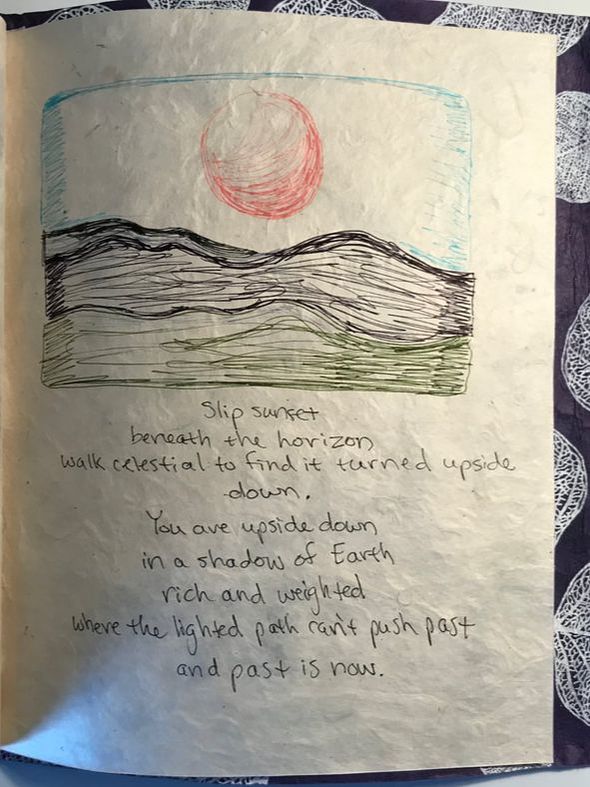 Slip sunset
beneath the horizon
walk celestial to find it turned upside
down.
You are upside down
in a shadow of Earth
rich and weighted
where the lighted path can't push past
and past is now.